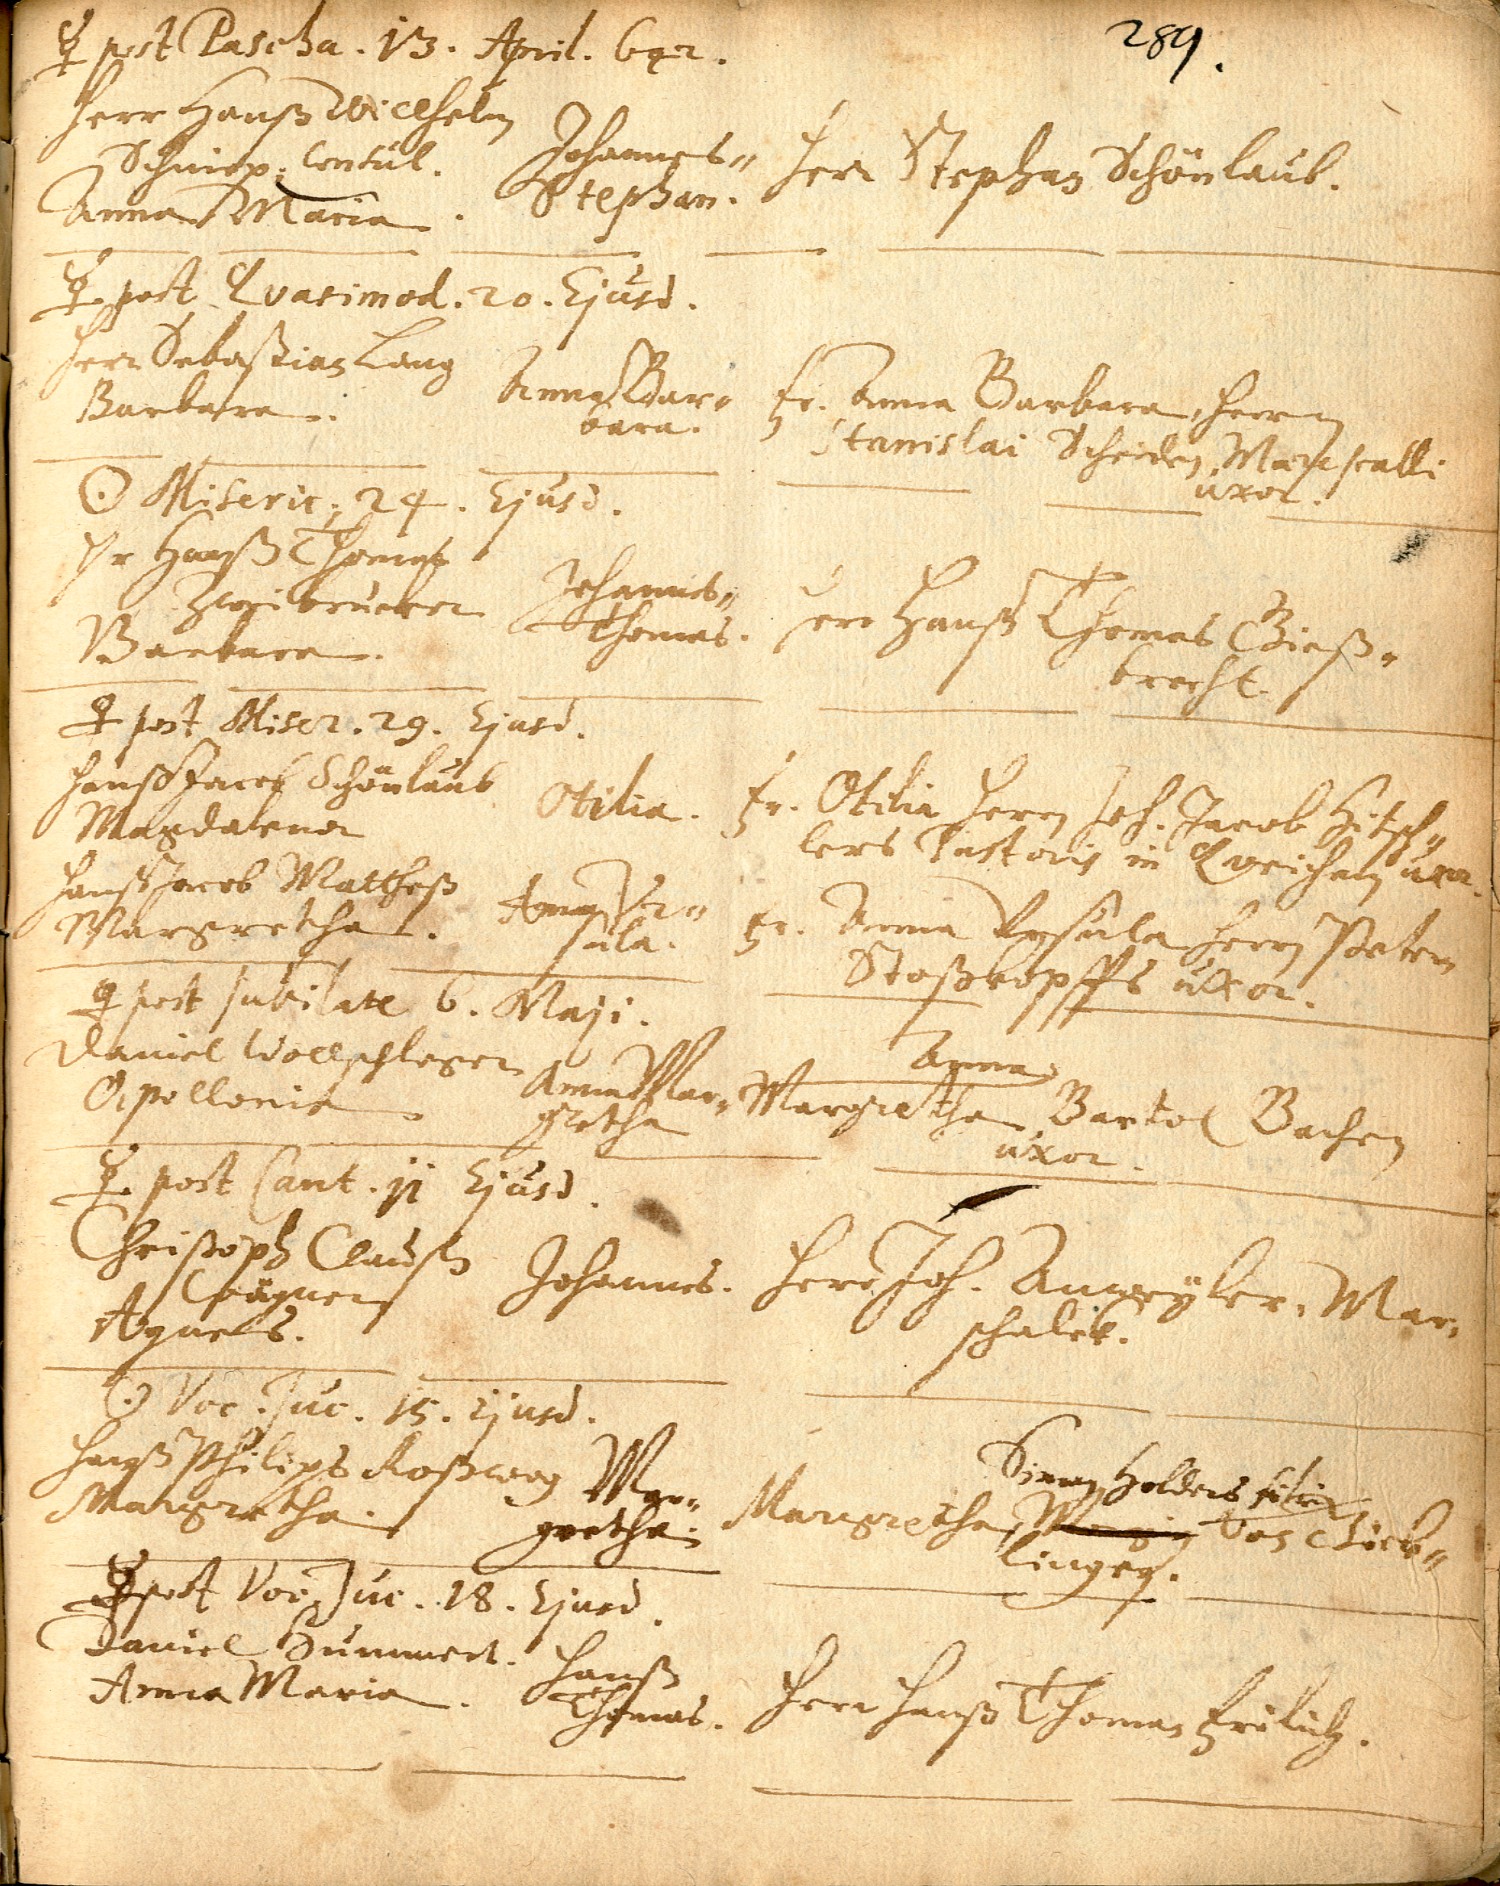 289.
☿ post Pascha. 13. April. 642.
Herr Hanß Willhelm
Schniep. Consul.
Anna Maria.
Johannes
Stephan.
Herr Stephan Schönlaub.
☿ post Quasimod. 20. Ejusd.
Herr Sebastian Lang
Barbara.
Anna Bar-
bara.
Fr. Anna Barbara, Herrn
Stanislai Scheiden Marescalli
uxor.
☉ Miseric. 24. Ejusd.
Hr Hanß Thomas
Zweibrucker
Barbara.
Johannes
Thomas.
Herr Hanß Thomas Gieß-
brecht.
♀ post Miser. 29. Ejusd.
Hanß Jacob Schönlaub
Magdalena
Otilia.
Fr. Otilia Herrn Joh. Jacob Hitsch-
lers Pastoris in Queichen uxor.
Hanß Jacob Mattheß
Margretha.
Anna Ur-
sula.
Fr. Anna Ursula Herrn Peter
Stoßkopffs uxor.
♀ post Jubilate 6. Maji.
Daniel Wollschleger
Apollonia.
Anna Mar-
gretha
Anna
Margretha Bartol Bachen
uxor.
☿ post Cant. 11 Ejusd.
Christoph Clauß
Wagner
Agnes.
Johannes.
Herr Joh. Anweyler, Mar-
schalck.
☉ Voc. Juc. 15. Ejusd.
Hanß Philips Roßweg
Margretha.
Mar-
gretha.
Simon Holders filia
Margretha, von Böck-
lingen.
☿ post Voc. Juc. 18. Ejusd.
Daniel Summer.
Anna Maria.
Hanß
Thomas.
Herr Hanß Thomas Frölich.